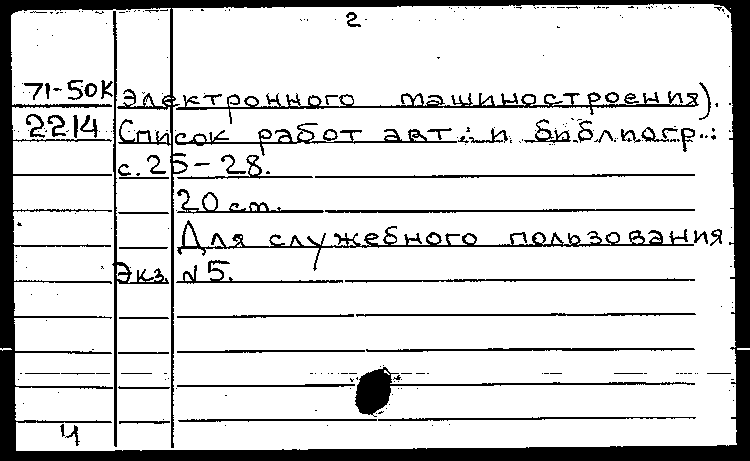 2
71-50К электронного машиностроения).
2214 Список работ авт.: и библиогр.:
с. 25-28.
20 ст.
Для служебного пользования.
Экз. N 5.
Ч